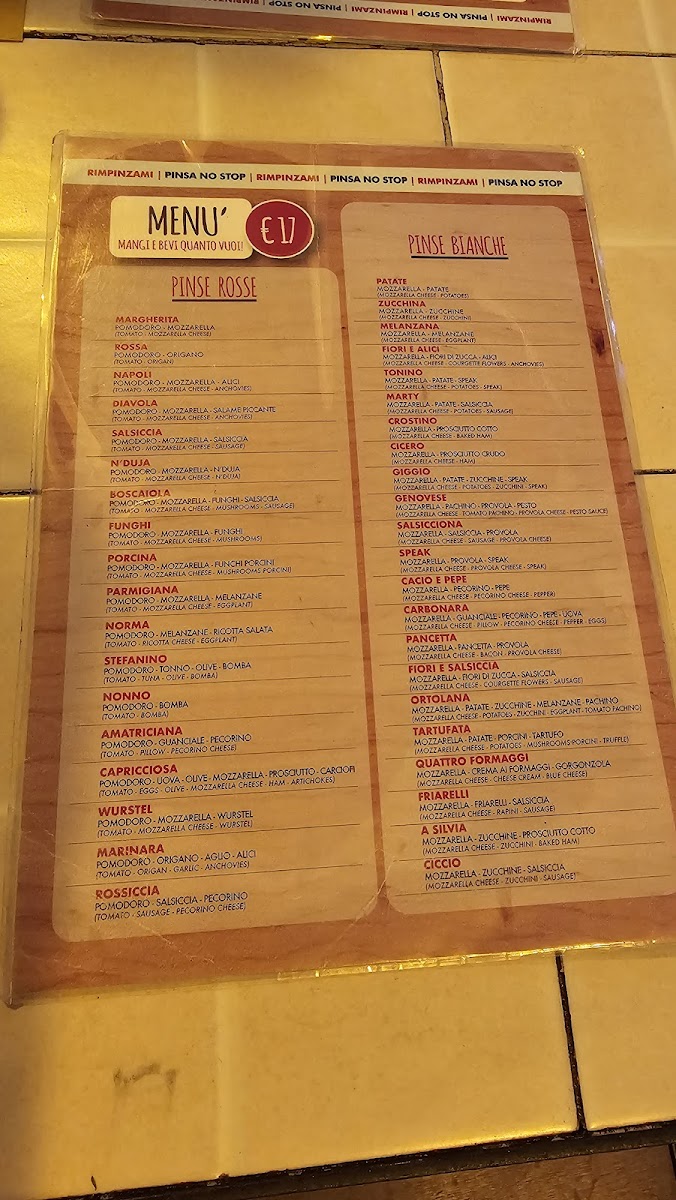 RIMPINZAMI | PINSA NO STOP | RIMPINZAMI
RIMPINZAMI | PINSA NO STOP | RIMPINZAMI | PINSA NO STOP | RIMPINZAMI | PINSA NO STOP
MENU'
MANGI E BEVI QUANTO VUOI!
€ 17
PINSE ROSSE
MARGHERITA
POMODORO - MOZZARELLA
(TOMATO - MOZZARELLA CHEESE)
ROSSA
POMODORO - ORIGANO
(TOMATO - ORIGAN)
NAPOLI
POMODORO - MOZZARELLA - ALICI
(TOMATO - MOZZARELLA CHEESE - ANCHOVIES)
DIAVOLA
POMODORO - MOZZARELLA - SALAME PICCANTE
(TOMATO - MOZZARELLA CHEESE - ANCHOVIES)
SALSICCIA
POMODORO - MOZZARELLA - SALSICCIA
(TOMATO - MOZZARELLA CHEESE - SAUSAGE)
N'DUJA
POMODORO - MOZZARELLA - N'DUJA
(TOMATO - MOZZARELLA CHEESE - N'DUJA)
BOSCAIOLA
POMODORO - MOZZARELLA - FUNGHI - SALSICCIA
(TOMASO - MOZZARELLA CHEESE - MUSHROOMS - SAUSAGE)
FUNGHI
POMODORO - MOZZARELLA - FUNGHI
(TOMATO - MOZZARELLA CHEESE - MUSHROOMS)
PORCINA
POMODORO - MOZZARELLA - FUNCHI PORCINI
(TOMATO - MOZZARELLA CHEESE - MUSHROOMS PORCINI)
PARMIGIANA
POMODORO - MOZZARELLA - MELANZANE
(TOMATO - MOZZARELLA CHEESE - EGGPLANT)
NORMA
POMODORO - MELANZANE - RICOTTA SALATA
(TOMATO - RICOTTA CHEESE - EGGPLANT)
STEFANINO
POMODORO - TONNO - OLIVE - BOMBA
(TOMATO - TUNA - OLIVE - BOMBA)
NONNO
POMODORO - BOMBA
(TOMATO - BOMBA)
AMATRICIANA
POMODORO - GUANCIALE - PECORINO
(TOMATO - PILLOW - PECORINO CHEESE)
CAPRICCIOSA
POMODORO - UOVA - OLIVE - MOZZARELLA - PROSCIUTTO - CARCIOFI
(TOMATO - EGGS - OLIVE - MOZZARELLA CHEESE - HAM - ARTICHOKES)
WURSTEL
POMODORO - MOZZARELLA - WURSTEL
(TOMATO - MOZZARELLA CHEESE - WURSTEL)
MARINARA
POMODORO - ORIGANO - AGLIO - ALICI
(TOMATO - ORIGAN - GARLIC - ANCHOVIES)
ROSSICCIA
POMODORO - SALSICCIA - PECORINO
(TOMATO - SAUSAGE - PECORINO CHEESE)
PINSE BIANCHE
PATATE
MOZZARELLA - PATATE
(MOZZARELLA CHEESE - POTATOES)
ZUCCHINA
MOZZARELLA - ZUCCHINE
(MOZZARELLA CHEESE - ZUCCHINI)
MELANZANA
MOZZARELLA - MELANZANE
(MOZZARELLA CHEESE - EGGPLANT)
FIORI E ALICI
MOZZARELLA - FIORI DI ZUCCA - ALICI
(MOZZARELLA CHEESE - COURGETTE FLOWERS - ANCHOVIES)
TONINO
MOZZARELLA - PATATE - SPEAK
(MOZZARELLA CHEESE - POTATOES - SPEAK)
MARTY
MOZZARELLA - PATATE - SALSICCIA
(MOZZARELLA CHEESE - POTATOES - SAUSAGE)
CROSTINO
MOZZARELLA - PROSCIUTTO COTTO
(MOZZARELLA CHEESE - BAKED HAM)
CICERO
MOZZARELLA - PROSCIUTTO CRUDO
(MOZZARELLA CHEESE - HAM)
GIGGIO
MOZZARELLA - PATATE - ZUCCHINE - SPEAK
(MOZZARELLA CHEESE - POTATOES - ZUCCHINI - SPEAK)
GENOVESE
MOZZARELLA - PACHINO - PROVOLA - PESTO
(MOZZARELLA CHEESE - TOMATO PACHINO - PROVOLA CHEESE - PESTO SAUCE)
SALSICCIONA
MOZZARELLA - SALSICCIA - PROVOLA
(MOZZARELLA CHEESE - SAUSAGE - PROVOLA CHEESE)
SPEAK
MOZZARELLA - PROVOLA - SPEAK
(MOZZARELLA CHEESE - PROVOLA CHEESE - SPEAK)
CACIO E PEPE
MOZZARELLA - PECORINO - PEPE
(MOZZARELLA CHEESE - PECORINO CHEESE - PEPPER)
CARBONARA
MOZZARELLA - GUANCIALE - PECORINO - PEPE - UOVA
(MOZZARELLA CHEESE - PILLOW - PECORINO CHEESE - PEPPER - EGGS)
PANCETTA
MOZZARELLA - PANCETTA - PROVOLA
(MOZZARELLA CHEESE - BACON - PROVOLA CHEESE)
FIORI E SALSICCIA
MOZZARELLA - FIORI DI ZUCCA - SALSICCIA
(MOZZARELLA CHEESE - COURGETTE FLOWERS - SAUSAGE)
ORTOLANA
MOZZARELLA - PATATE - ZUCCHINE - MELANZANE - PACHINO
(MOZZARELLA CHEESE - POTATOES - ZUCCHINI - EGGPLANT - TOMATO PACHINO)
TARTUFATA
MOZZARELLA - PATATE - PORCINI - TARTUFO
(MOZZARELLA CHEESE - POTATOES - MUSHROOMS PORCINI - TRUFFLE)
QUATTRO FORMAGGI
MOZZARELLA - CREMA AI FORMAGGI - GORGONZOLA
(MOZZARELLA CHEESE - CHEESE CREAM - BLUE CHEESE)
FRIARELLI
MOZZARELLA - FRIARELLI - SALSICCIA
(MOZZARELLA CHEESE - RAPINI - SAUSAGE)
A SILVIA
MOZZARELLA - ZUCCHINE - PROSCIUTTO COTTO
(MOZZARELLA CHEESE - ZUCCHINI - BAKED HAM)
CICCIO
MOZZARELLA - ZUCCHINE - SALSICCIA
(MOZZARELLA CHEESE - ZUCCHINI - SAUSAGE)